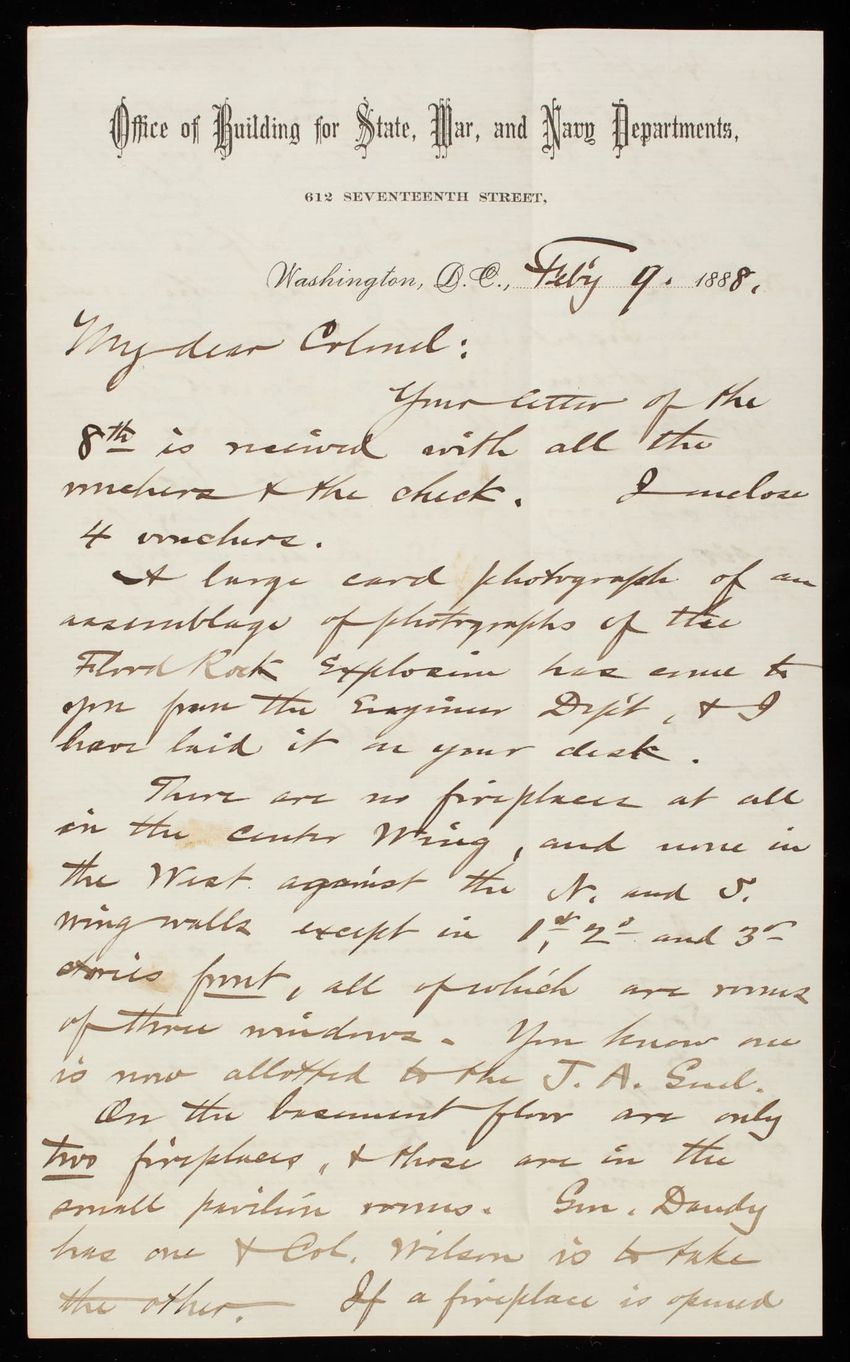 Office of Building for State, War, and Navy Departments,
612 SEVENTEENTH STREET,
Washington, D.C., Feb'y 9. 1888.
My dear Colonel:
Your letter of the
8th is received with all the
vouchers & the check. I enclose
4 vouchers.
A large card photograph of an
assemblage of photographs of the
Flood Rock Explosion has come to
you from the Engineer Dep't, & I
have laid it on your desk.
There are no fireplaces at all
in the center Wing, and none in
the West against the N. and S.
wing walls except in 1st, 2d and 3rd
stories front, all of which are rooms
of three windows. You know one
is now allotted to the J. A. Genl.
On the basement floor are only
two fireplaces, & those are in the
small pavilion rooms. Gen. Dandy
has one & Col. Wilson is to take
the other. If a fireplace is opened